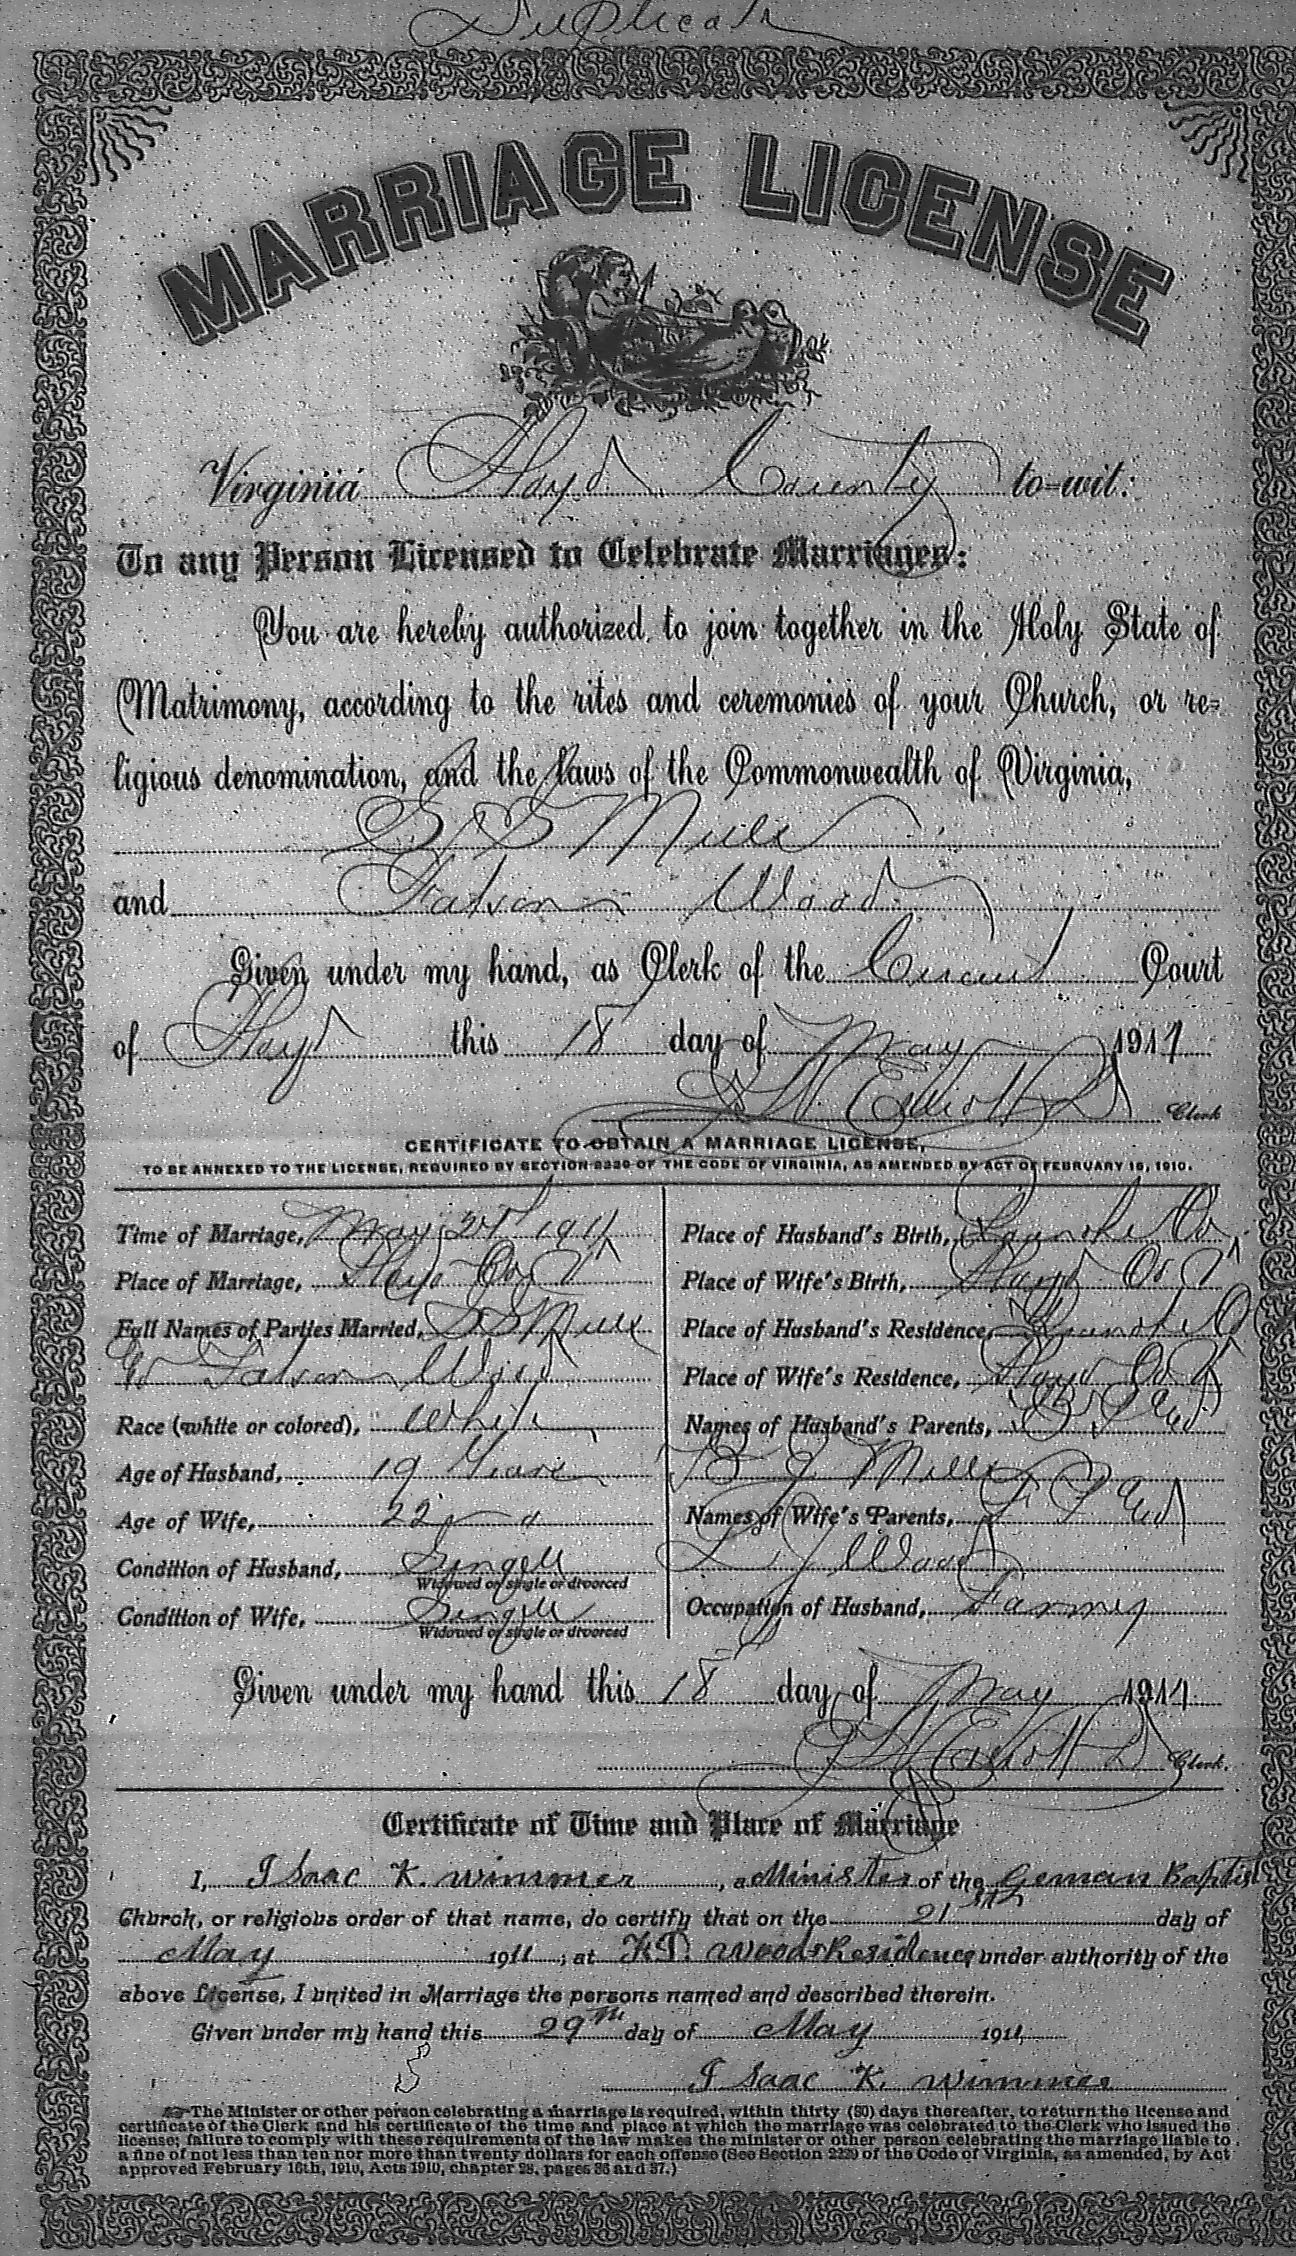 Duplicate
MARRIAGE LICENSE
Virginia Floyd County to-wit:
To any Person Licensed to Celebrate Marriages:
You are hereby authorized to join together in the Holy State of
Matrimony, according to the rites and ceremonies of your Church, or re-
ligious denomination, and the laws of the Commonwealth of Virginia,
S S Mills
and Wood
Given under my hand, as Clerk of the Circuit Court
of Floyd this 18 day of May 1911
Elliott Clerk
CERTIFICATE TO OBTAIN A MARRIAGE LICENSE,
TO BE ANNEXED TO THE LICENSE, REQUIRED BY SECTION 2229 OF THE CODE OF VIRGINIA, AS AMENDED BY ACT OF FEBRUARY 16, 1910.
Time of Marriage, May 1911
Place of Marriage, Floyd Co Va
Full Names of Parties Married, S S Mills
Wood
Race (white or colored), White
Age of Husband, 19 Years
Age of Wife, 22
Condition of Husband, Single
Widowed or single or divorced
Condition of Wife, Single
Widowed or single or divorced
Place of Husband's Birth, Roanoke Co
Place of Wife's Birth, Floyd Co Va
Place of Husband's Residence, Roanoke
Place of Wife's Residence, Floyd Co Va
Names of Husband's Parents,
Mills
Names of Wife's Parents,
Wood
Occupation of Husband, Farming
Given under my hand this 18 day of May 1911
Elliott Clerk.
Certificate of Time and Place of Marriage
I, Isaac K. Wimmer, a Minister of the Geman Baptist
Church, or religious order of that name, do certify that on the 21 day of
May 1911; at Woods Residence, under authority of the
above License, I united in Marriage the persons named and described therein.
Given under my hand this 29th day of May 1911
Isaac K. Wimmer
The Minister or other person celebrating a marriage is required, within thirty (30) days thereafter, to return the license and
certificate of the Clerk and his certificate of the time and place at which the marriage was celebrated to the Clerk who issued the
license; failure to comply with these requirements of the law makes the minister or other person celebrating the marriage liable to
a fine of not less than ten nor more than twenty dollars for each offense (See Section 2229 of the Code of Virginia, as amended, by Act
approved February 16th, 1910, Acts 1910, chapter 28, pages 36 and 37.)